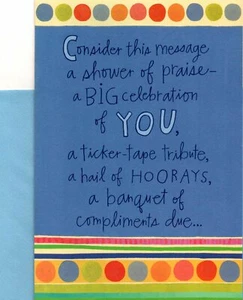 Consider this message
a shower of praise–
a BIG celebration
of YOU,
a ticker-tape tribute,
a hail of HOORAYS,
a banquet of
compliments due...